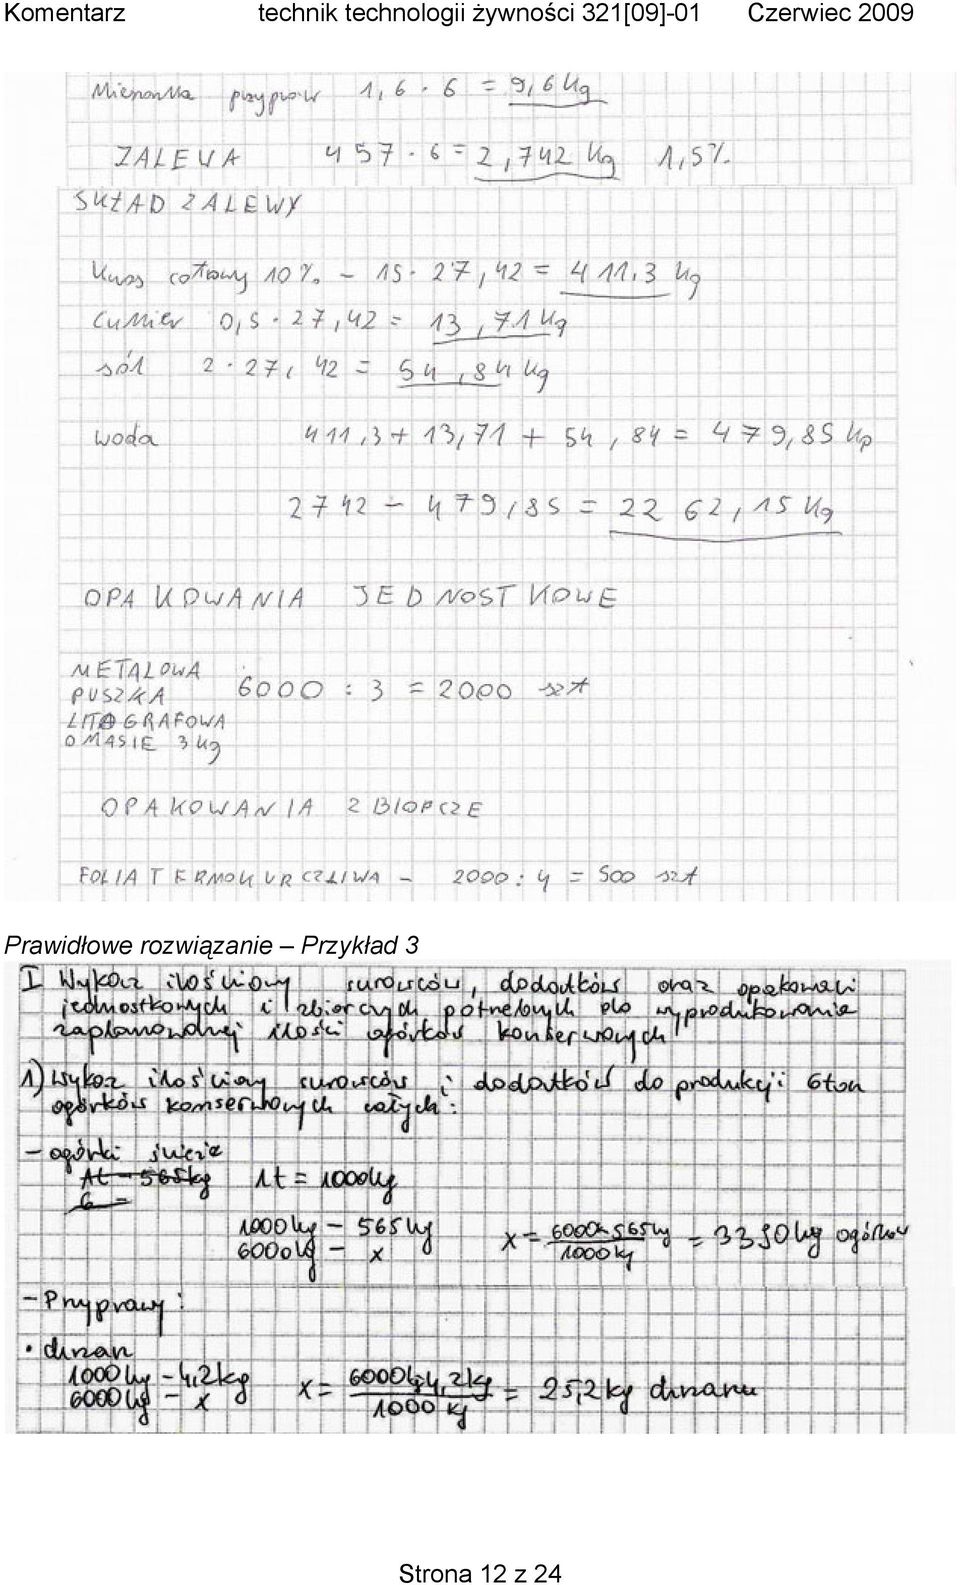 Komentarz technik technologii żywności 321[09]-01 Czerwiec 2009
Mieszanka przypraw 1,6 · 6 = 9,6 kg
ZALEWA 457 · 6 = 2,742 kg 1,5%
SKŁAD ZALEWY
Kwas octowy 10% – 15 · 27,42 = 411,3 kg
Cukier 0,5 · 27,42 = 13,71 kg
sól 2 · 27,42 = 54,84 kg
woda 411,3 + 13,71 + 54,84 = 479,85 kg
2742 – 479,85 = 2262,15 kg
OPAKOWANIA JEDNOSTKOWE
METALOWA
PUSZKA 6000 : 3 = 2000 szt
LITOGRAFOWA
O MASIE 3 kg
OPAKOWANIA ZBIORCZE
FOLIA TERMOKURCZLIWA – 2000 : 4 = 500 szt
Prawidłowe rozwiązanie – Przykład 3
I Wykaz ilościowy surowców, dodatków oraz opakowań
jednostkowych i zbiorczych potrzebnych do wyprodukowania
zaplanowanej ilości ogórków konserwowych
1) Wykaz ilościowy surowców i dodatków do produkcji 6 ton
ogórków konserwowych całych:
– ogórki świeże
1t – 565kg 1t = 1000kg
6 =
1000kg – 565kg
6000kg – x
x = 6000 · 565kg / 1000kg = 3390kg ogórków
– Przyprawy:
• chrzan
1000kg – 4,2kg
6000kg – x
x = 6000kg · 4,2kg / 1000 kg = 25,2kg chrzanu
Strona 12 z 24